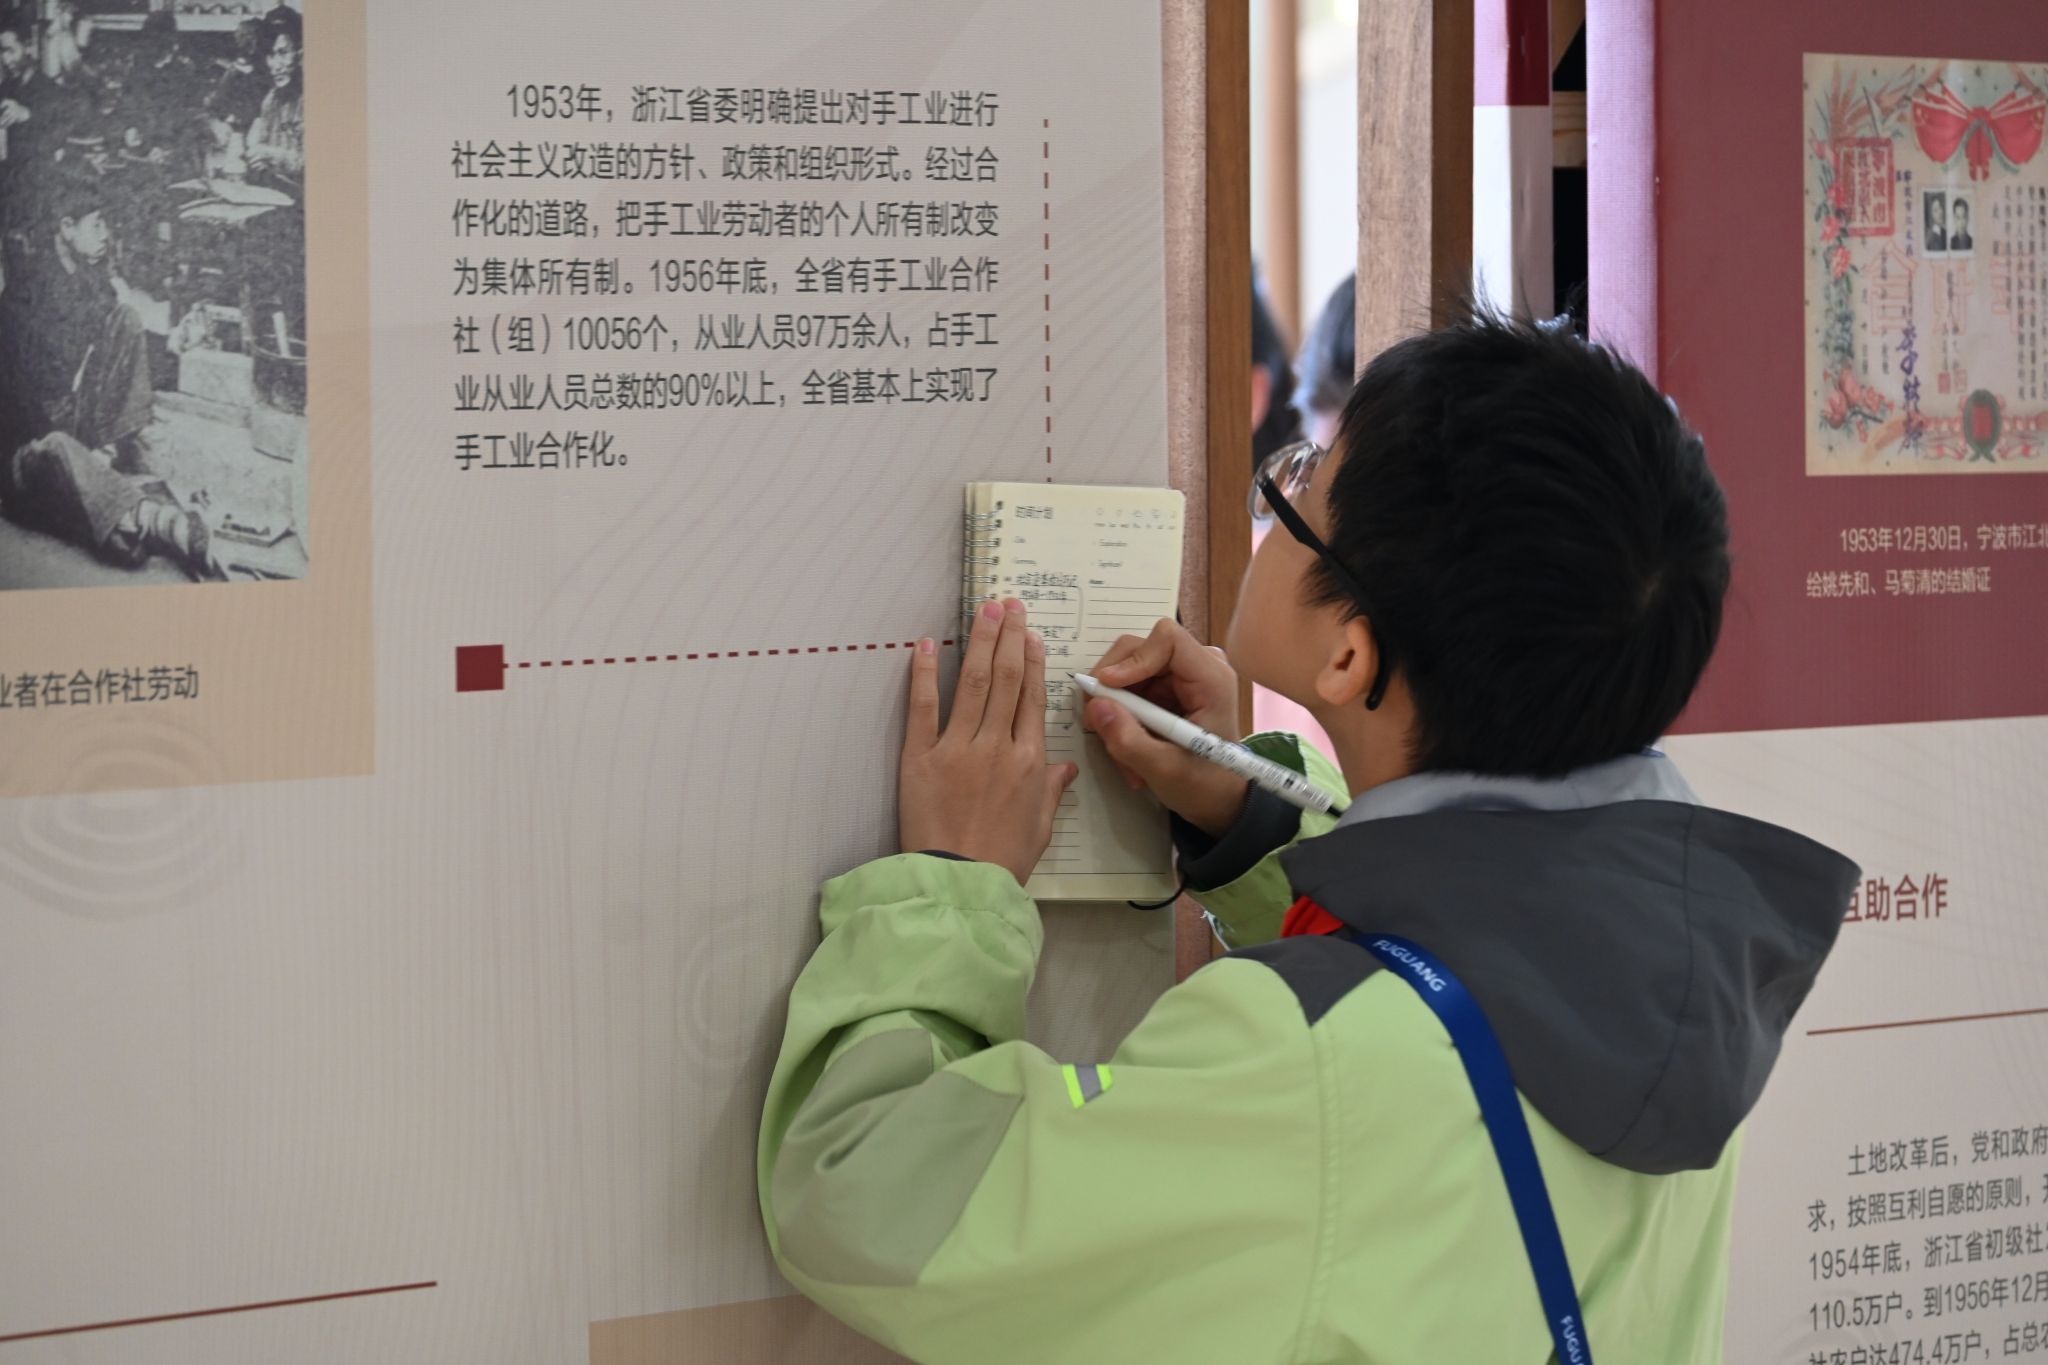 1953年，浙江省委明确提出对手工业进行
社会主义改造的方针、政策和组织形式。经过合
作化的道路，把手工业劳动者的个人所有制改变
为集体所有制。1956年底，全省有手工业合作
社（组）10056个，从业人员97万余人，占手工
业从业人员总数的90%以上，全省基本上实现了
手工业合作化。
业者在合作社劳动
时间计划
1953年12月30日，宁波市江北
给姚先和、马菊清的结婚证
互助合作
土地改革后，党和政府
求，按照互利自愿的原则，
1954年底，浙江省初级社
110.5万户。到1956年12月
社农户达474.4万户，占总农
FUGUANG
FUGU